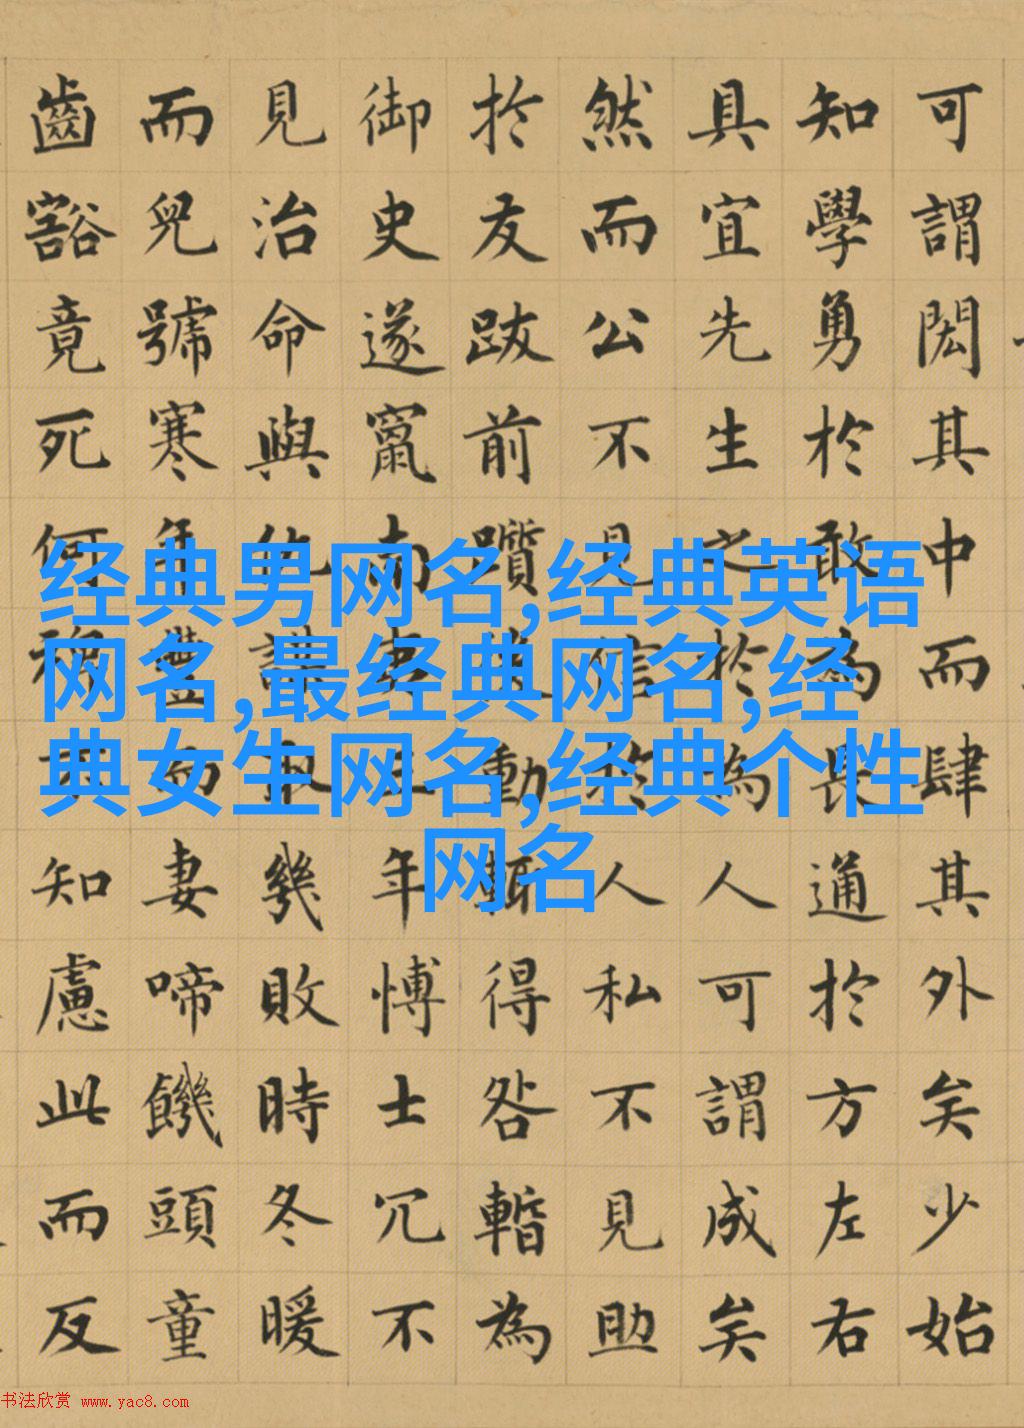 可謂閎其中而肆其外矣少始
知學勇於敢為長通於方左右
具宜先生之於為人可謂成矣
然而公不見信於人私不見助
於友跋前躓後動輒得咎暫為
御史遂竄南夷三年愽士冗不
見治命與仇謀取幾敗時冬暖
而兒號寒年豐而妻啼饑頭童
齒豁竟死何裨不知慮此而反
经典男网名,经典英语
网名,最经典网名,经
典女生网名,经典个性
网名
书法欣赏 www.yac8.com